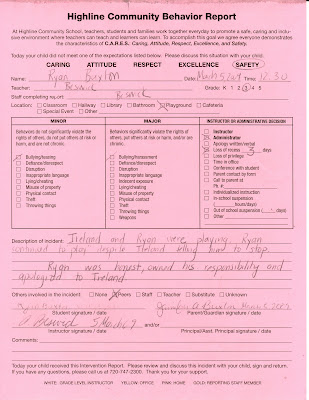 Highline Community Behavior Report
At Highline Community School, teachers, students and families work together everyday to promote a safe, caring and inclu-
sive environment where teachers can teach and learners can learn. To accomplish this goal we agree everyone demonstrates
the characteristics of C.A.R.E.S. Caring, Attitude, Respect, Excellence, and Safety.
Today your child did not meet one of the expectations listed below. Please discuss this situation with your child.
CARING ATTITUDE RESPECT EXCELLENCE SAFETY
Name: Ryan Buxton Date: March 5, Time: 12:30
Teacher: Beswick Grade: K 1 2 3 4 5
Staff completing report: Beswick
Location: Classroom Hallway Library Bathroom Playground Cafeteria
Special Event Other
MINOR
Behaviors do not significantly violate the rights
of others, do not put others at risk or harm,
and are not chronic.
Bullying/horseplay
Defiance/disrespect
Disruption
Inappropriate language
Lying/cheating
Misuse of property
Physical contact
Theft
Throwing things
MAJOR
Behaviors significantly violate the rights
of others, put others at risk or harm, and/or are
chronic.
Bullying/harassment
Defiance/disrespect
Disruption
Inappropriate language
Indecent exposure
Lying/cheating
Misuse of property
Physical contact
Theft
Throwing things
Weapons
INSTRUCTOR OR ADMINISTRATIVE DECISION
Instructor
Administrator
Apology written/verbal
Loss of recess days
Loss of privilege
Time in office
Conference with student
Parent contact by form
Call to parent at
Ph. #:
Individualized instruction
In-school suspension
( hours/days)
Out of school suspension ( days)
Other
Description of incident: Ireland and Ryan were playing. Ryan
continued to "play" despite Ireland telling him to stop.
Ryan was honest, owned his responsibility and
apologized to Ireland
Others involved in the incident: None Peers Staff Teacher Substitute Unknown
Student signature / date Parent/Guardian signature / date
and/or
Instructor signature / date Principal/Asst. Principal signature / date
Comments:
Today your child received this Intervention Report. Please review and discuss this incident with your child, sign and return.
If you have any questions, please call us at 720-747-2300. Thank you for your support.
WHITE: GRADE LEVEL INSTRUCTOR YELLOW: OFFICE PINK: HOME GOLD: REPORTING STAFF MEMBER